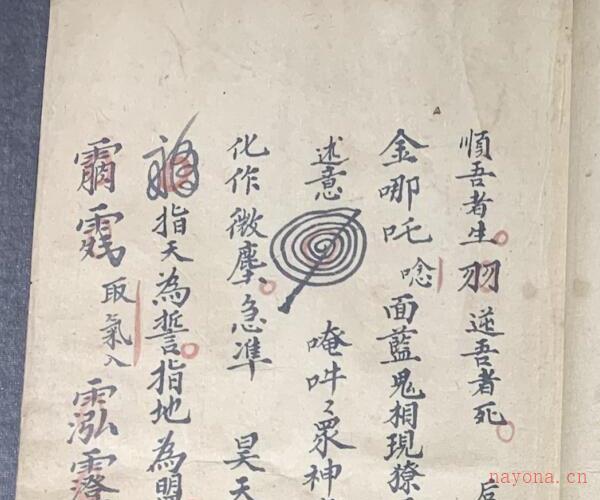 順吾者生羽逆吾者死 后
金哪吒 唸 面藍鬼相現獠
述意 唵吽〻眾神
化作微塵急准 昊天
指天為誓指地為盟
取氣入
nayona.cn